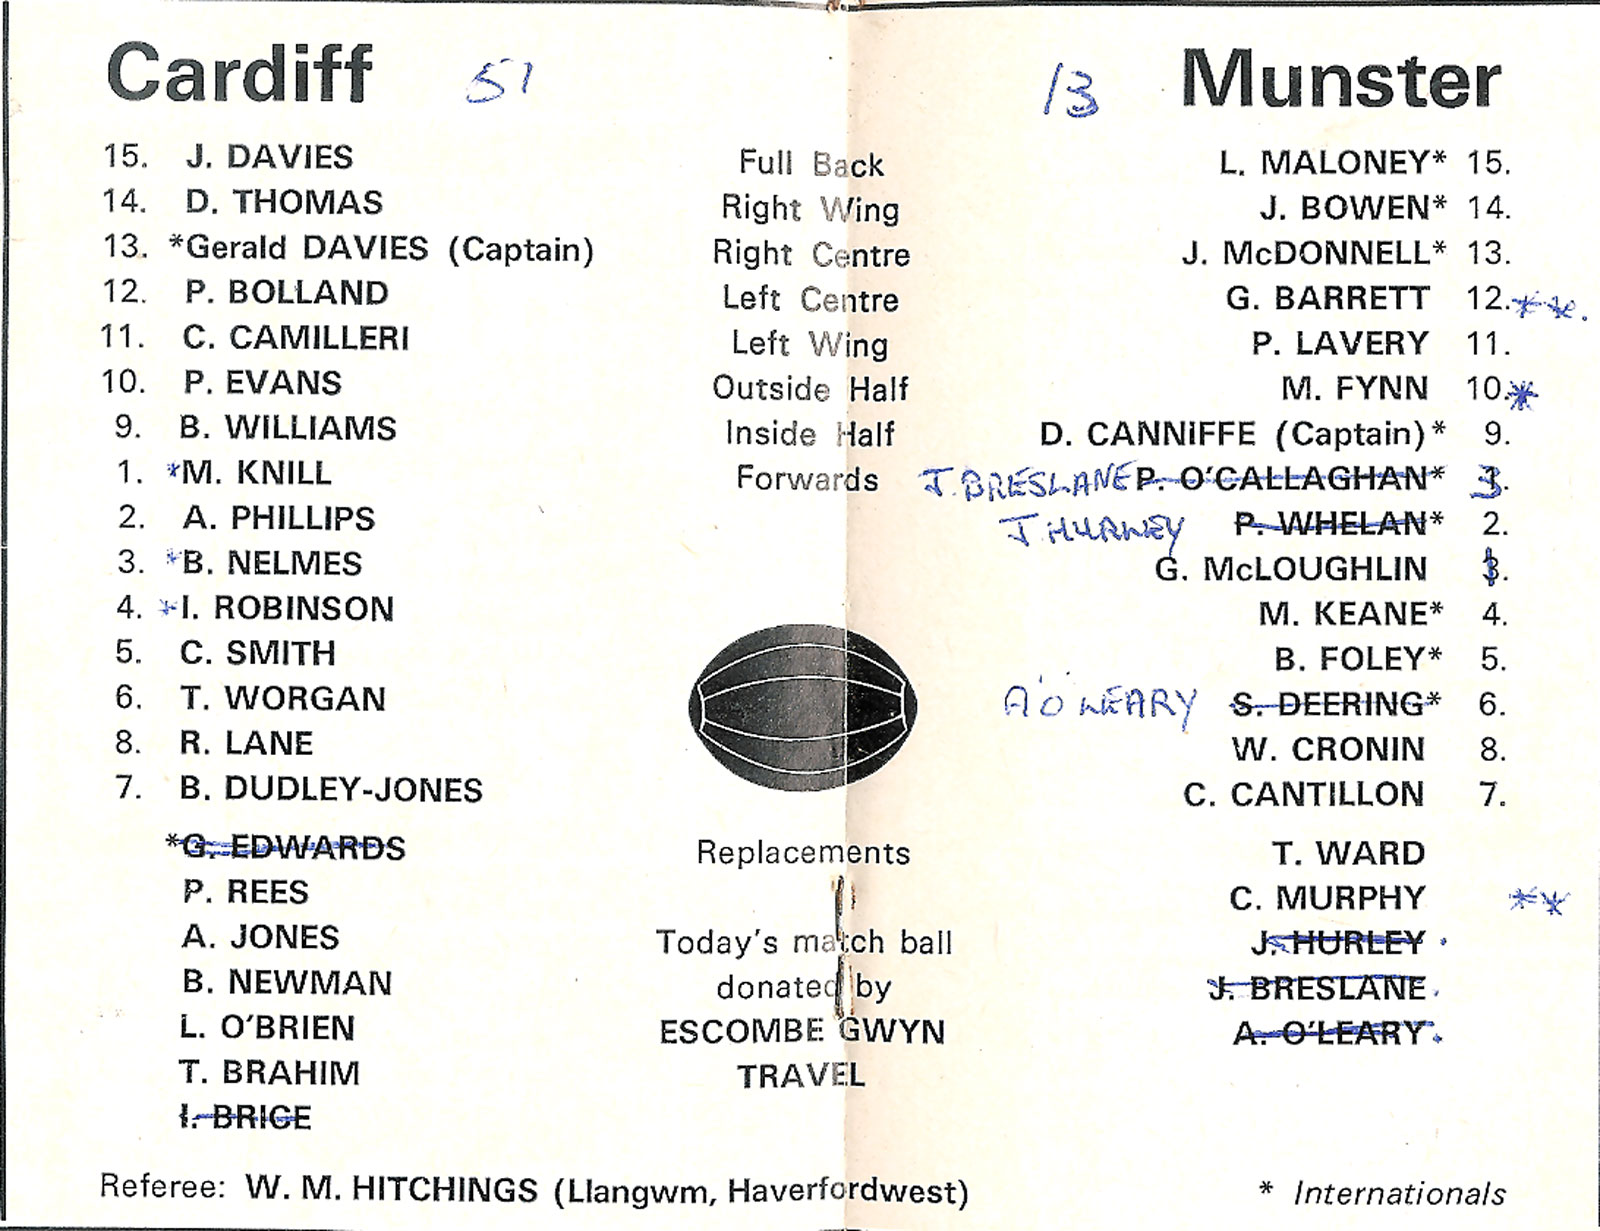 Cardiff 51 13 Munster
15. J. DAVIES Full Back L. MALONEY* 15.
14. D. THOMAS Right Wing J. BOWEN* 14.
13. *Gerald DAVIES (Captain) Right Centre J. McDONNELL* 13.
12. P. BOLLAND Left Centre G. BARRETT 12. **.
11. C. CAMILLERI Left Wing P. LAVERY 11.
10. P. EVANS Outside Half M. FYNN 10. *
9. B. WILLIAMS Inside Half D. CANNIFFE (Captain)* 9.
1. *M. KNILL Forwards J. BRESLANE P. O'CALLAGHAN* 3
2. A. PHILLIPS J HURLEY P. WHELAN* 2.
3. *B. NELMES G. McLOUGHLIN 1.
4. *I. ROBINSON M. KEANE* 4.
5. C. SMITH B. FOLEY* 5.
6. T. WORGAN A O'LEARY S. DEERING* 6.
8. R. LANE W. CRONIN 8.
7. B. DUDLEY-JONES C. CANTILLON 7.
*G. EDWARDS Replacements T. WARD
P. REES C. MURPHY **
A. JONES Today's match ball J. HURLEY
B. NEWMAN donated by J. BRESLANE
L. O'BRIEN ESCOMBE GWYN A. O'LEARY
T. BRAHIM TRAVEL
I. BRICE
Referee: W. M. HITCHINGS (Llangwm, Haverfordwest) * Internationals